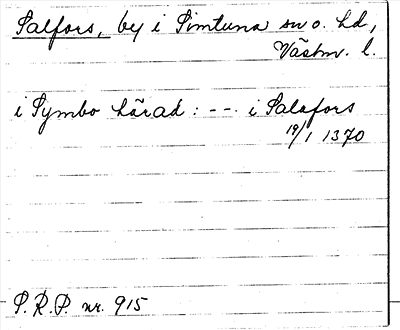 Salfors, by i Simtuna sn o. hd,
Västm. l.
i Symbo härad : -- i Salafors
19/1 1370
S.R.P. nr. 915